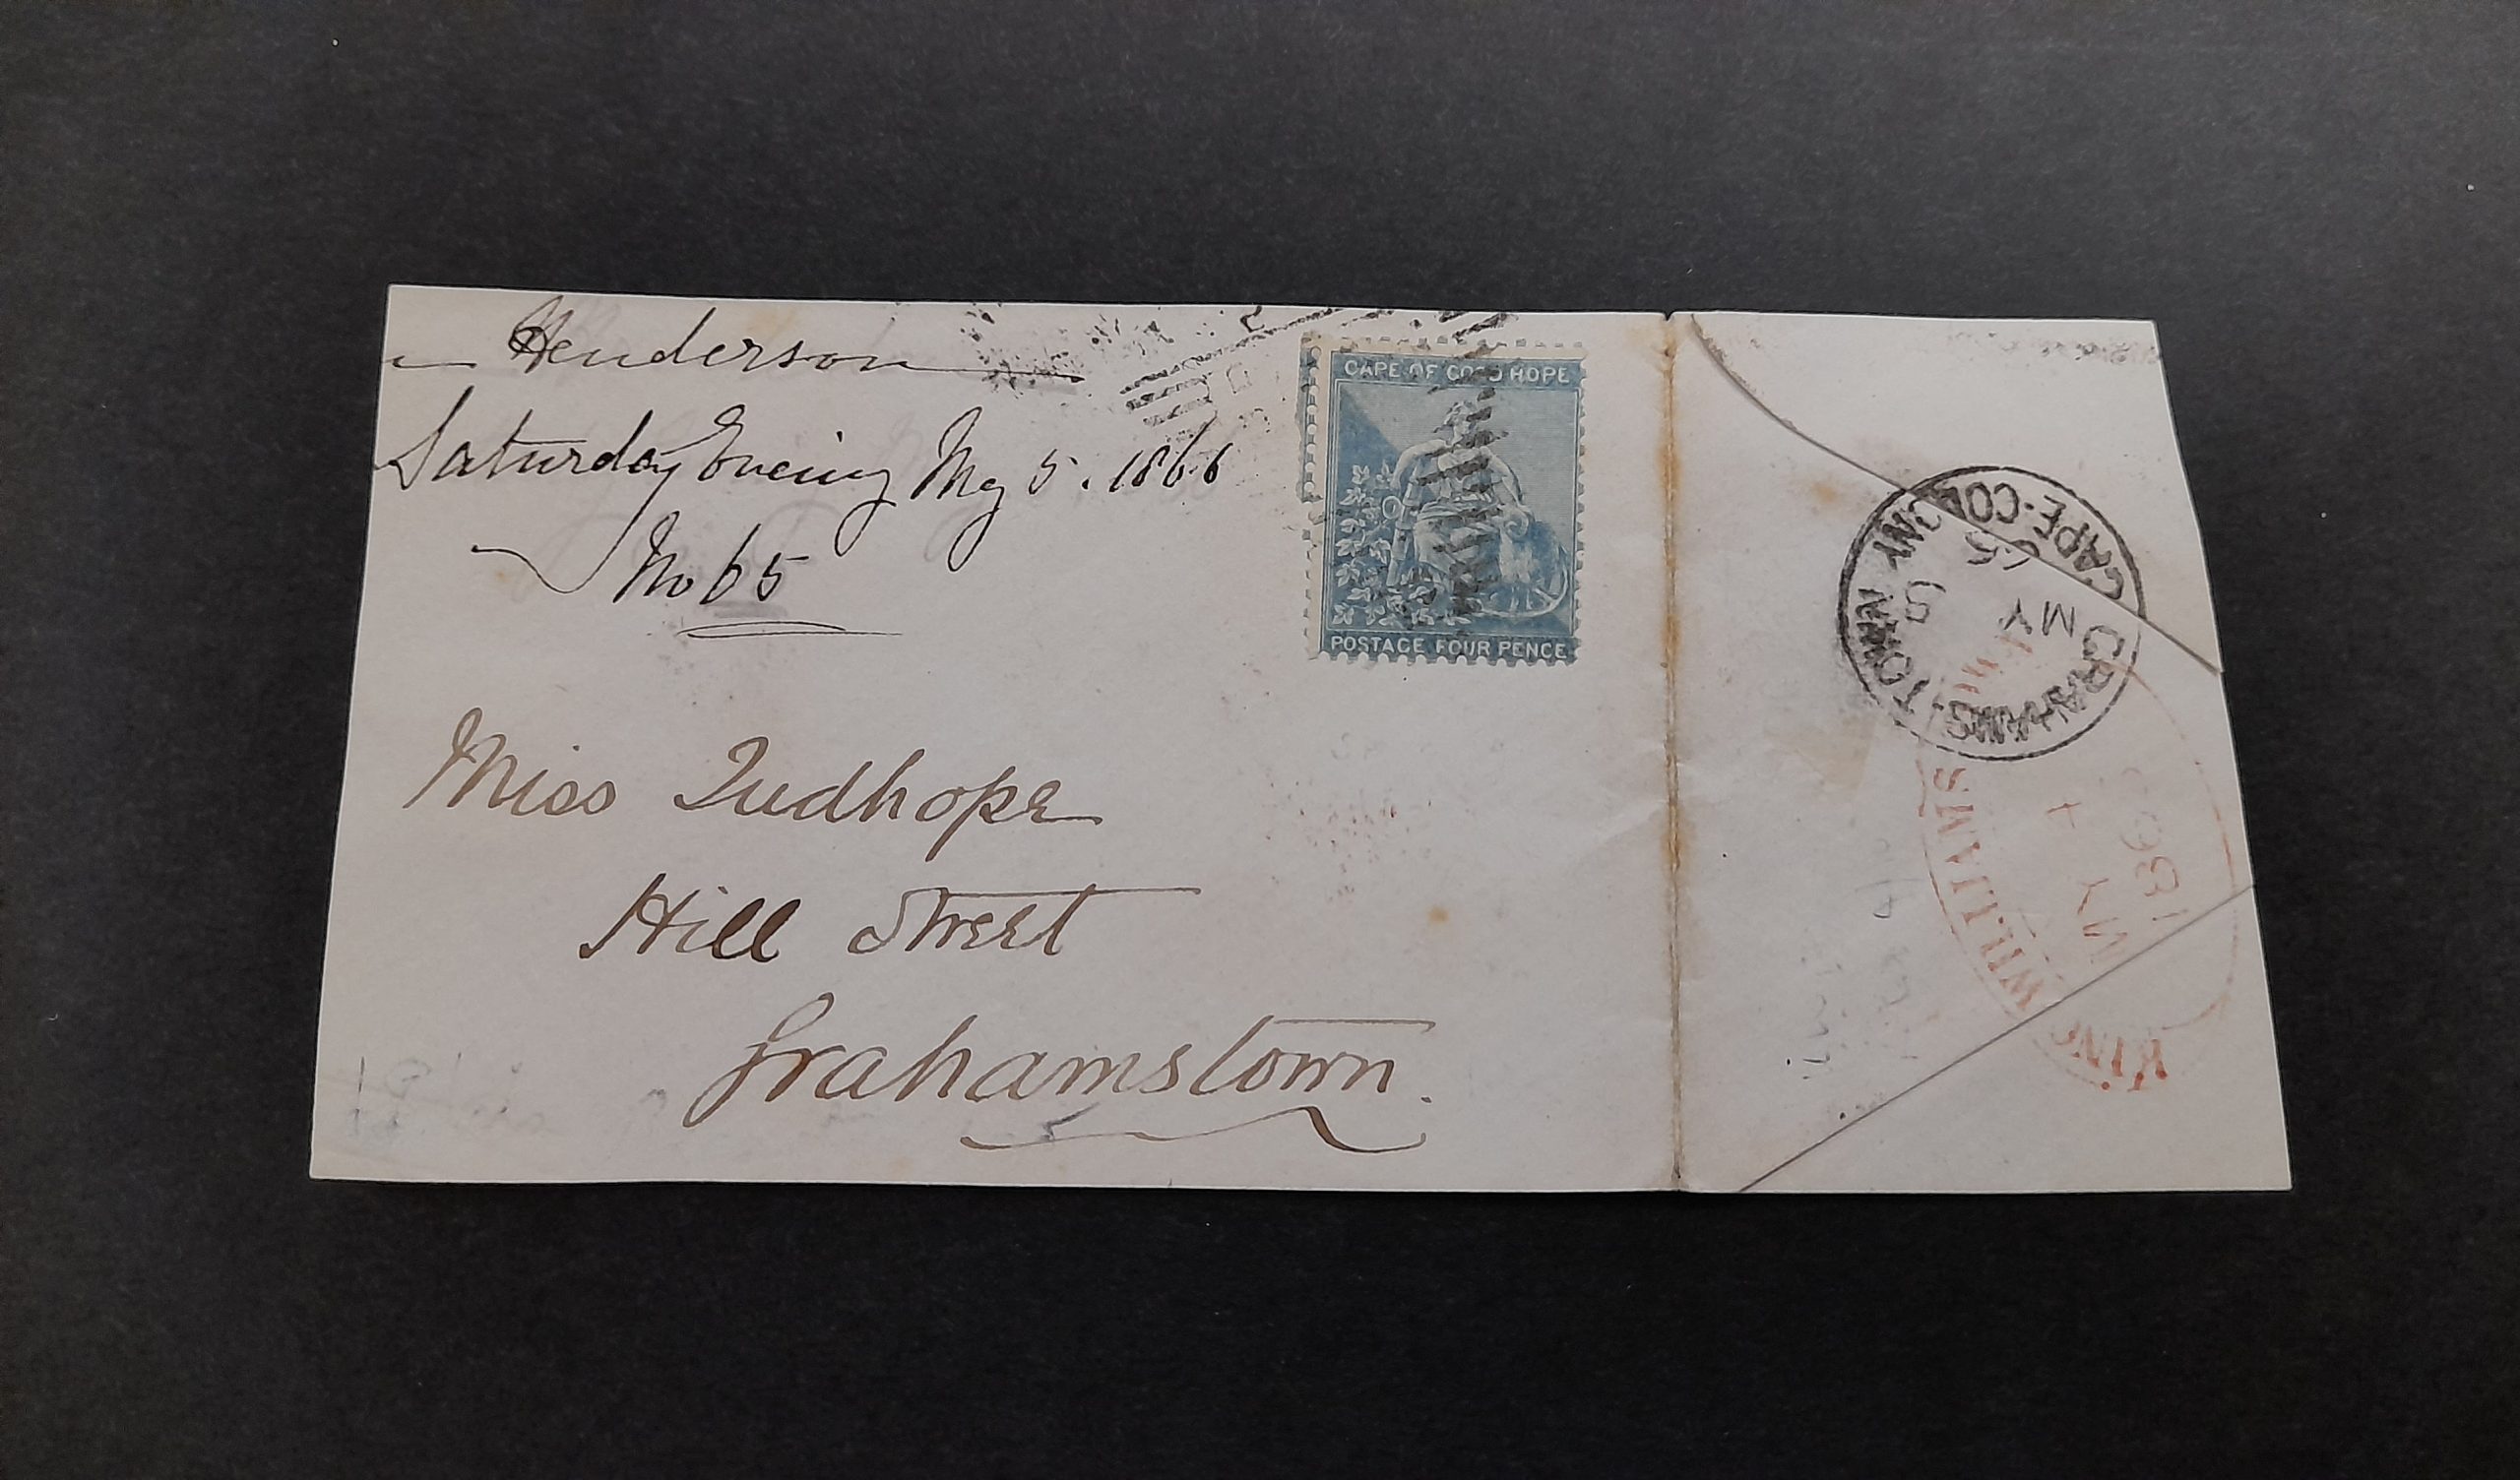 Henderson
Saturday Evening My 5. 1866
No 65
CAPE OF GOOD HOPE
POSTAGE FOUR PENCE
Miss Tudhope
Hill Street
Grahamstown.
GRAHAMS-TOWN
CAPE-COLONY
MY
5
6
KING WILLIAMS
MY 4